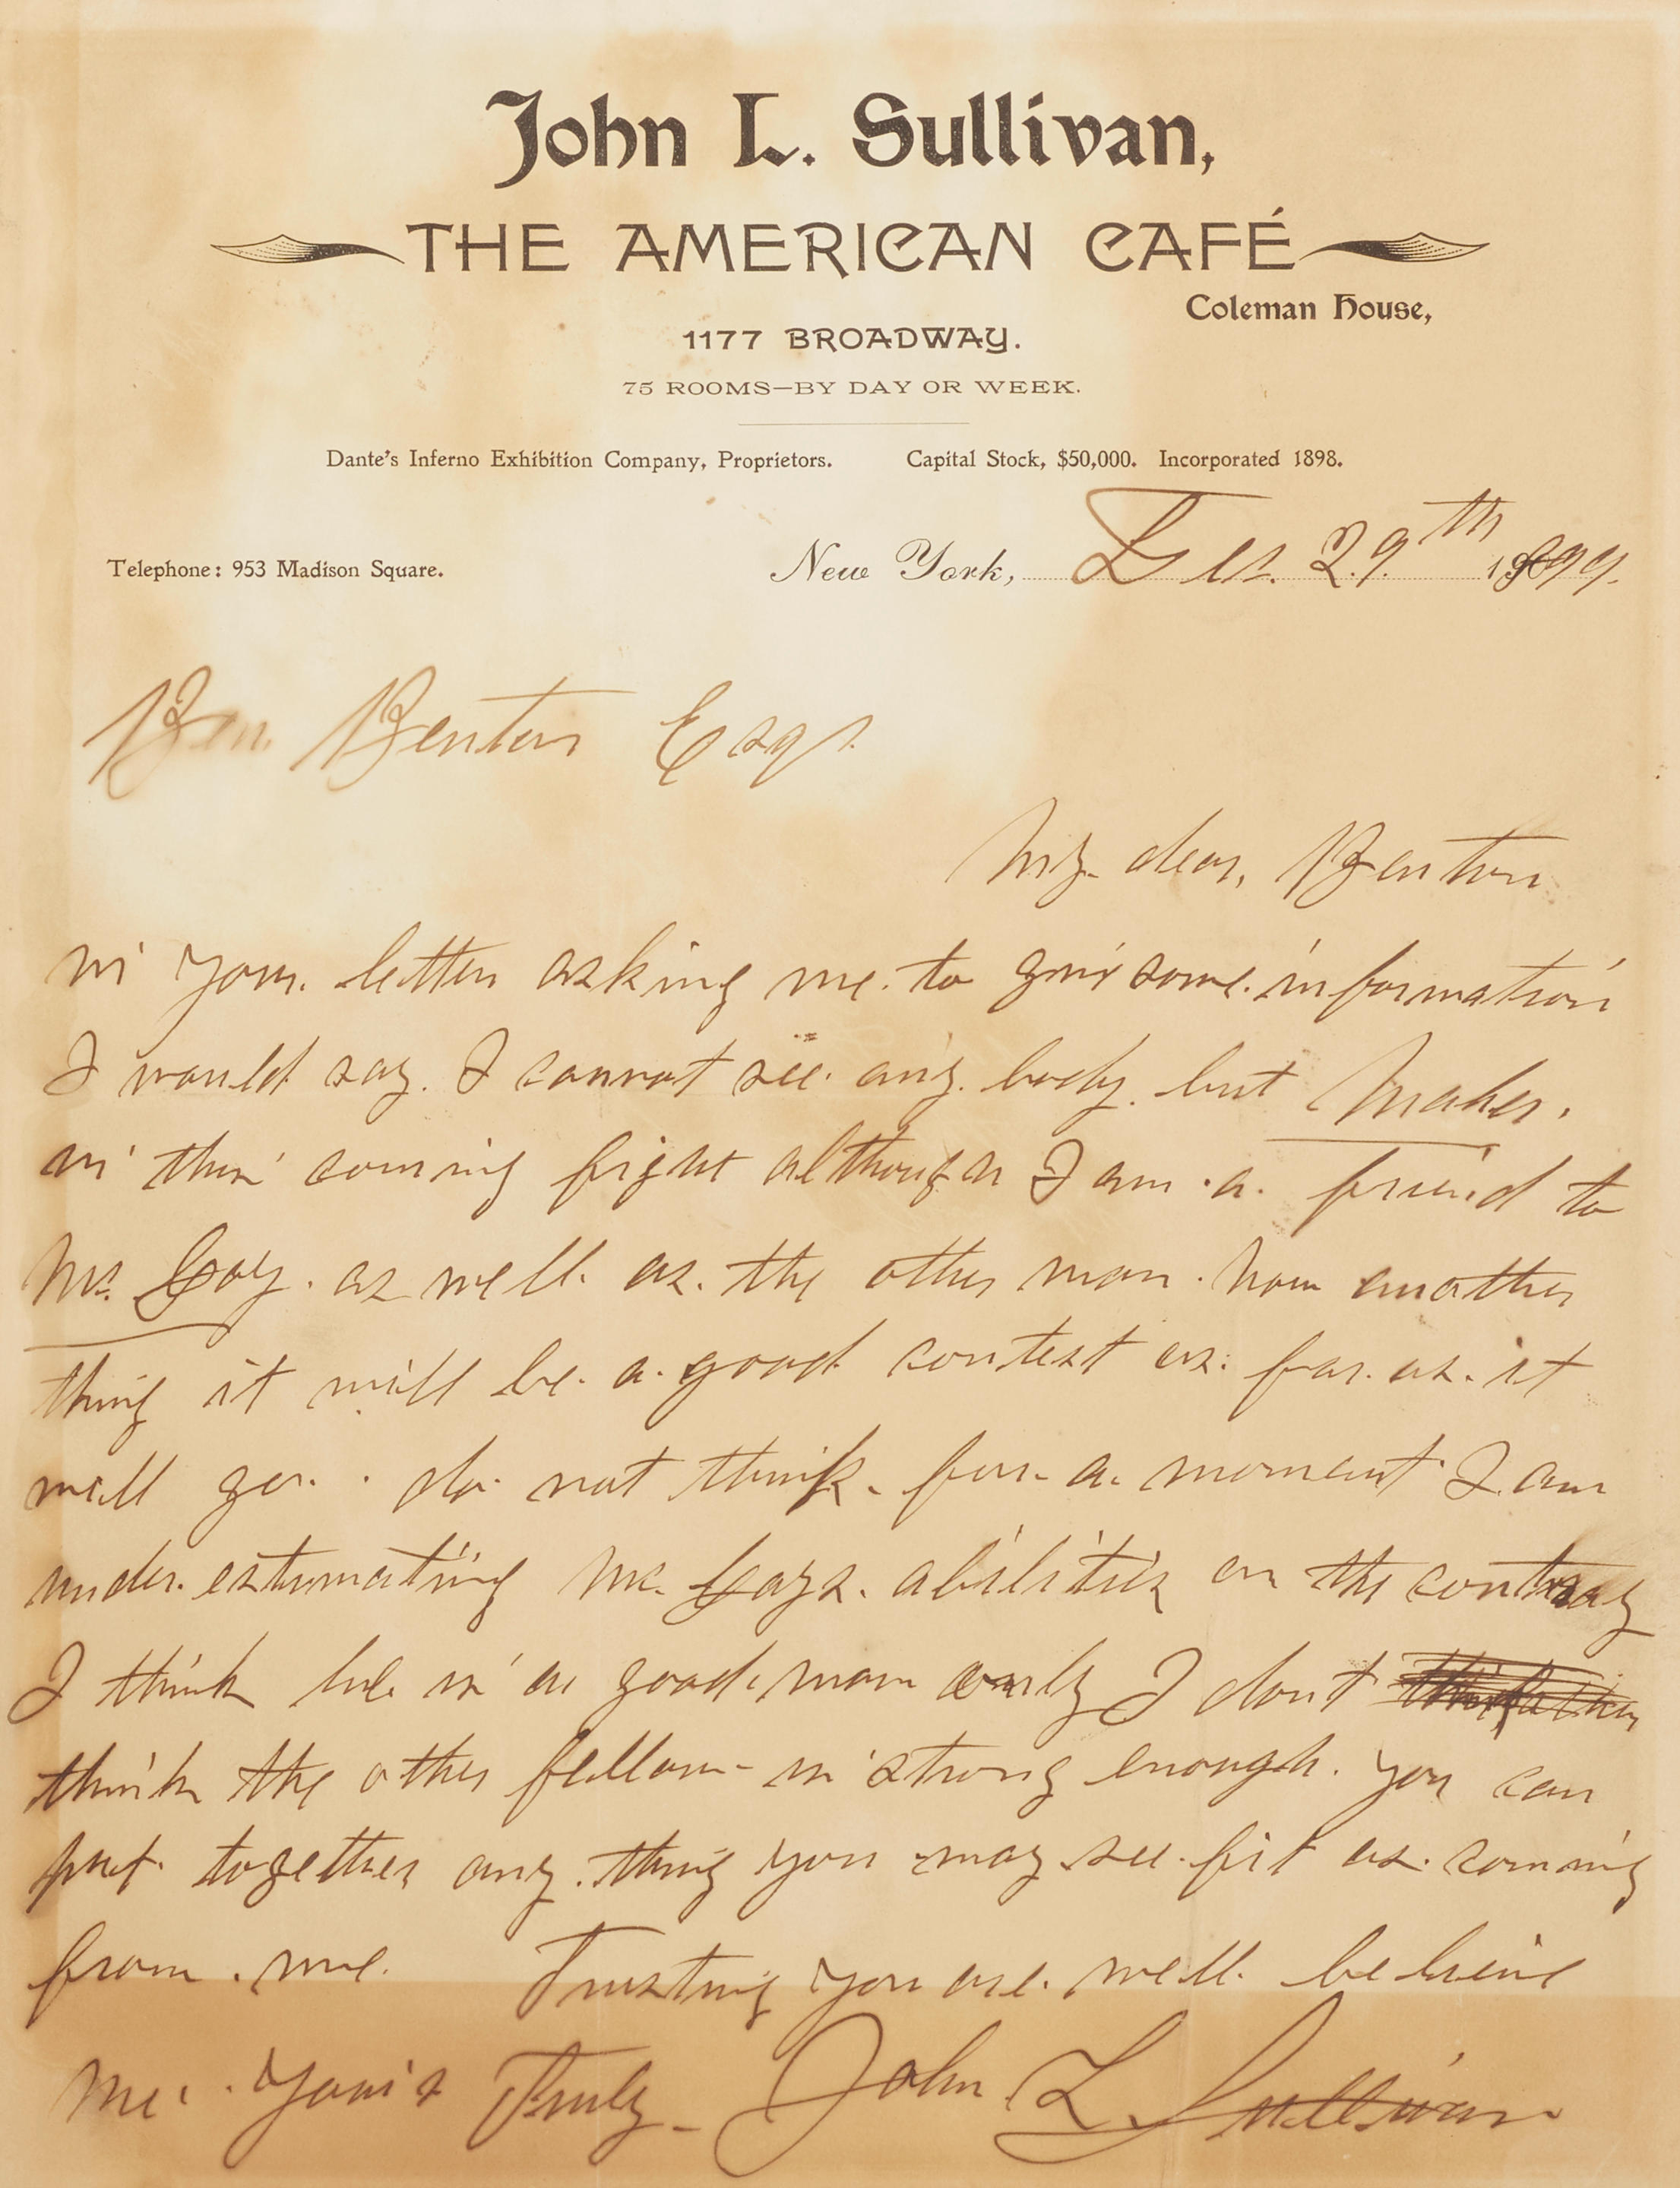 John L. Sullivan,
THE AMERICAN CAFÉ
Coleman House,
1177 BROADWAY.
75 ROOMS—BY DAY OR WEEK.
Dante's Inferno Exhibition Company, Proprietors. Capital Stock, $50,000. Incorporated 1898.
Telephone: 953 Madison Square. New York, Dec. 29th 1899.
Ben Benton Esqr.
My dear, Benton
in your letter asking me to give some information
I would say I cannot see any body but Maher.
in this coming fight although I am a friend to
Mc. Coy. as well as the other man. now another
thing it will be a good contest as far as it
will go. do not think for a moment I am
under estimating Mc. Coys. abilities on the contray
I think he is a good man only I dont
think the other fellow is strong enough. you can
put together any thing you may see fit as coming
from me. Trusting you are well believe
me. Yours Truly John L. Sullivan